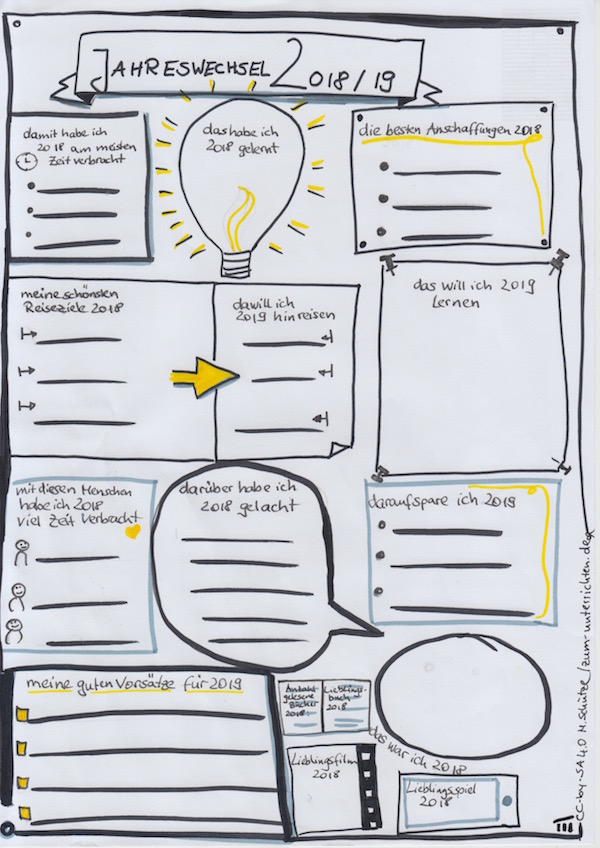 JAHRESWECHSEL 2018/19
damit habe ich
2018 am meisten
Zeit verbracht
das habe ich
2018 gelernt
die besten Anschaffungen 2018
meine schönsten
Reiseziele 2018
da will ich
2019 hinreisen
das will ich 2019
Lernen
mit diesen Menschen
habe ich 2018
viel Zeit verbracht
darüber habe ich
2018 gelacht
darauf spare ich 2019
meine guten Vorsätze für 2019
Anzahl
gelesene
Bücher
2018:
Lieblings-
buch
2018
das war ich 2018
Lieblingsfilm
2018
Lieblingsspiel
2018
CC-by-SA 4.0 M.Schütze / zum-unterrichten.de